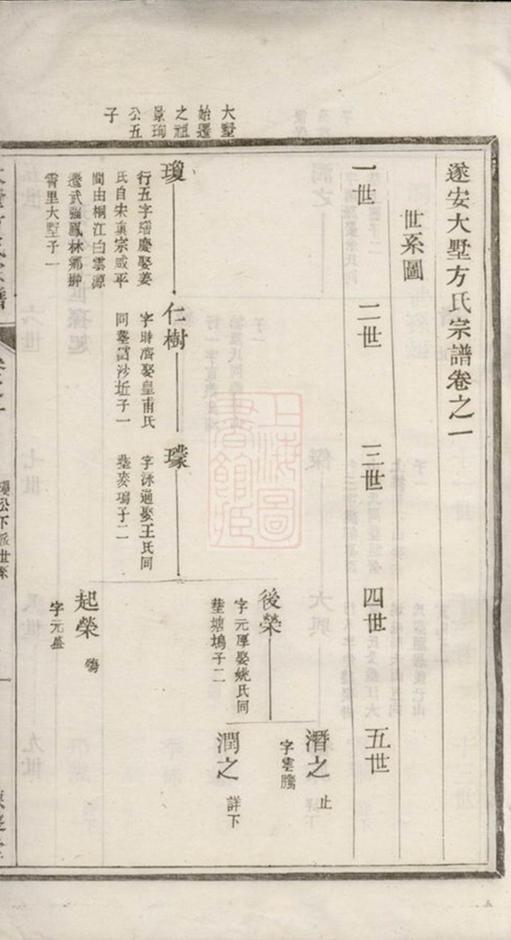 遂安大墅方氏宗譜卷之一
世系圖
一世
二世
三世
四世
五世
大墅
始遷
之祖
景珣
公五
子
瓊
行五字瑞慶娶姜
氏自宋真宗咸平
間由桐江白雲源
遷武強鳳林鄉翀
霄里大墅子一
仁樹
字時濟娶皇甫氏
同塟富沙坵子一
璪
字泳通娶王氏同
塟麥塢子二
後榮
字元厚娶姚氏同
塟塘塢子二
起榮
字元盛
殤
潛之
字雲騰
止
潤之
詳下
上海圖
書館藏